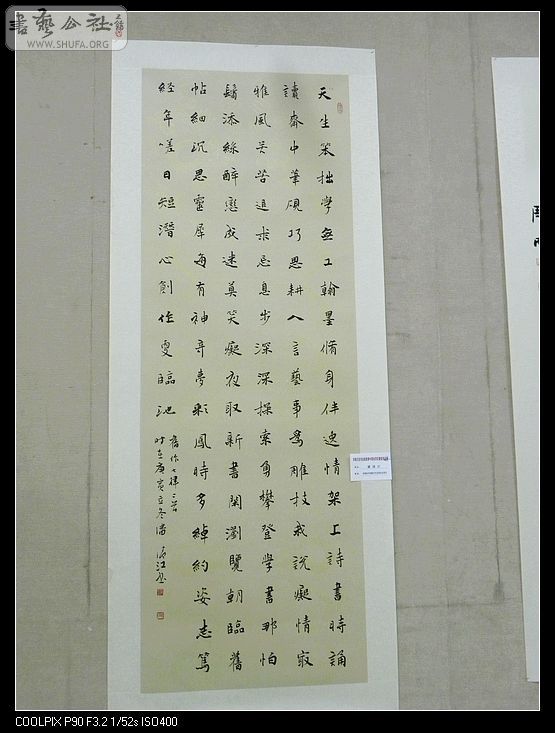 書藝公社
WWW.SHUFA.ORG
天生笨拙學無工翰墨脩身伴逸情架上詩書時誦
讀齋中筆硯巧思耕人言藝事為雕技我說癡情寂
雅風苦追求忘息步深深探索勇攀登學書那怕
鬢添絲醉戀成迷莫笑癡夜取新書閑瀏覽朝臨舊
帖細沉思靈犀每有神奇夢彩鳳時多綽約姿志篤
經年嗟日短潛心創作更臨池
舊作七律二首
时在庚寅立冬潘江書
COOLPIX P90 F3.2 1/52s ISO400